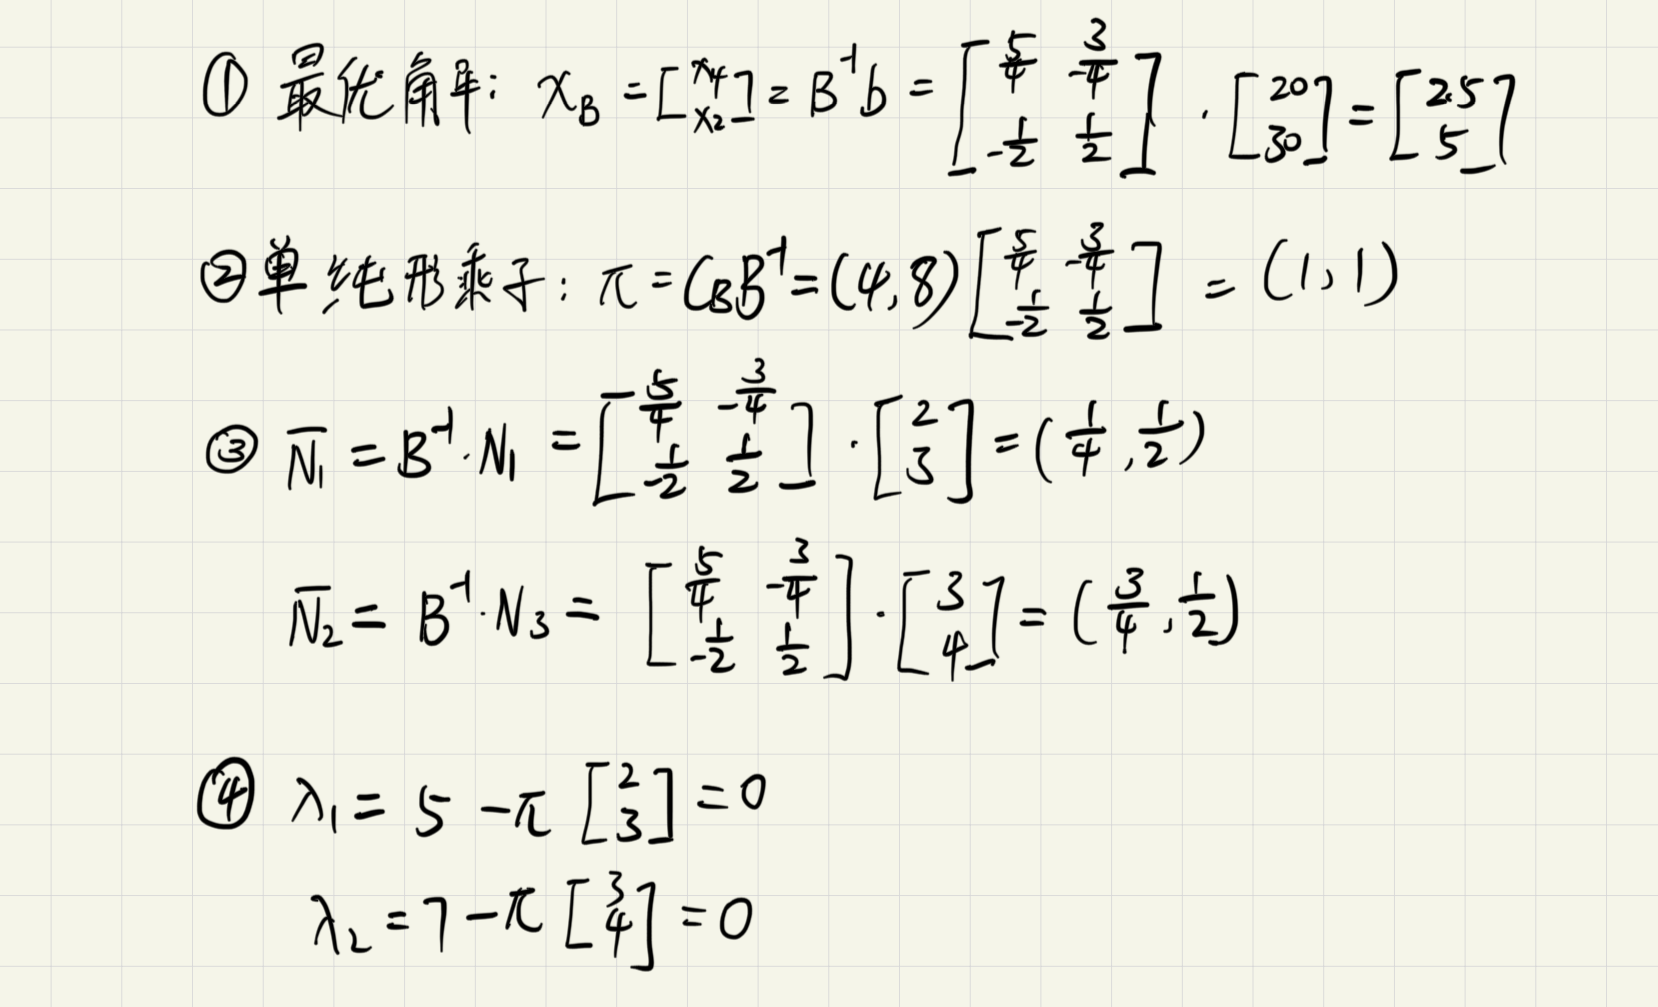 ① 最优角牟: x_B = [x_4; x_2] = B^{-1}b = [5/4 -3/4; -1/2 1/2] · [20; 30] = [2.5; 5]
② 单纯形乘子: π = C_B B^{-1} = (4, 8) [5/4 -3/4; -1/2 1/2] = (1, 1)
③ \overline{N_1} = B^{-1} · N_1 = [5/4 -3/4; -1/2 1/2] · [2; 3] = (1/4, 1/2)
\overline{N_2} = B^{-1} · N_3 = [5/4 -3/4; -1/2 1/2] · [3; 4] = (3/4, 1/2)
④ λ_1 = 5 - π [2; 3] = 0
λ_2 = 7 - π [3; 4] = 0